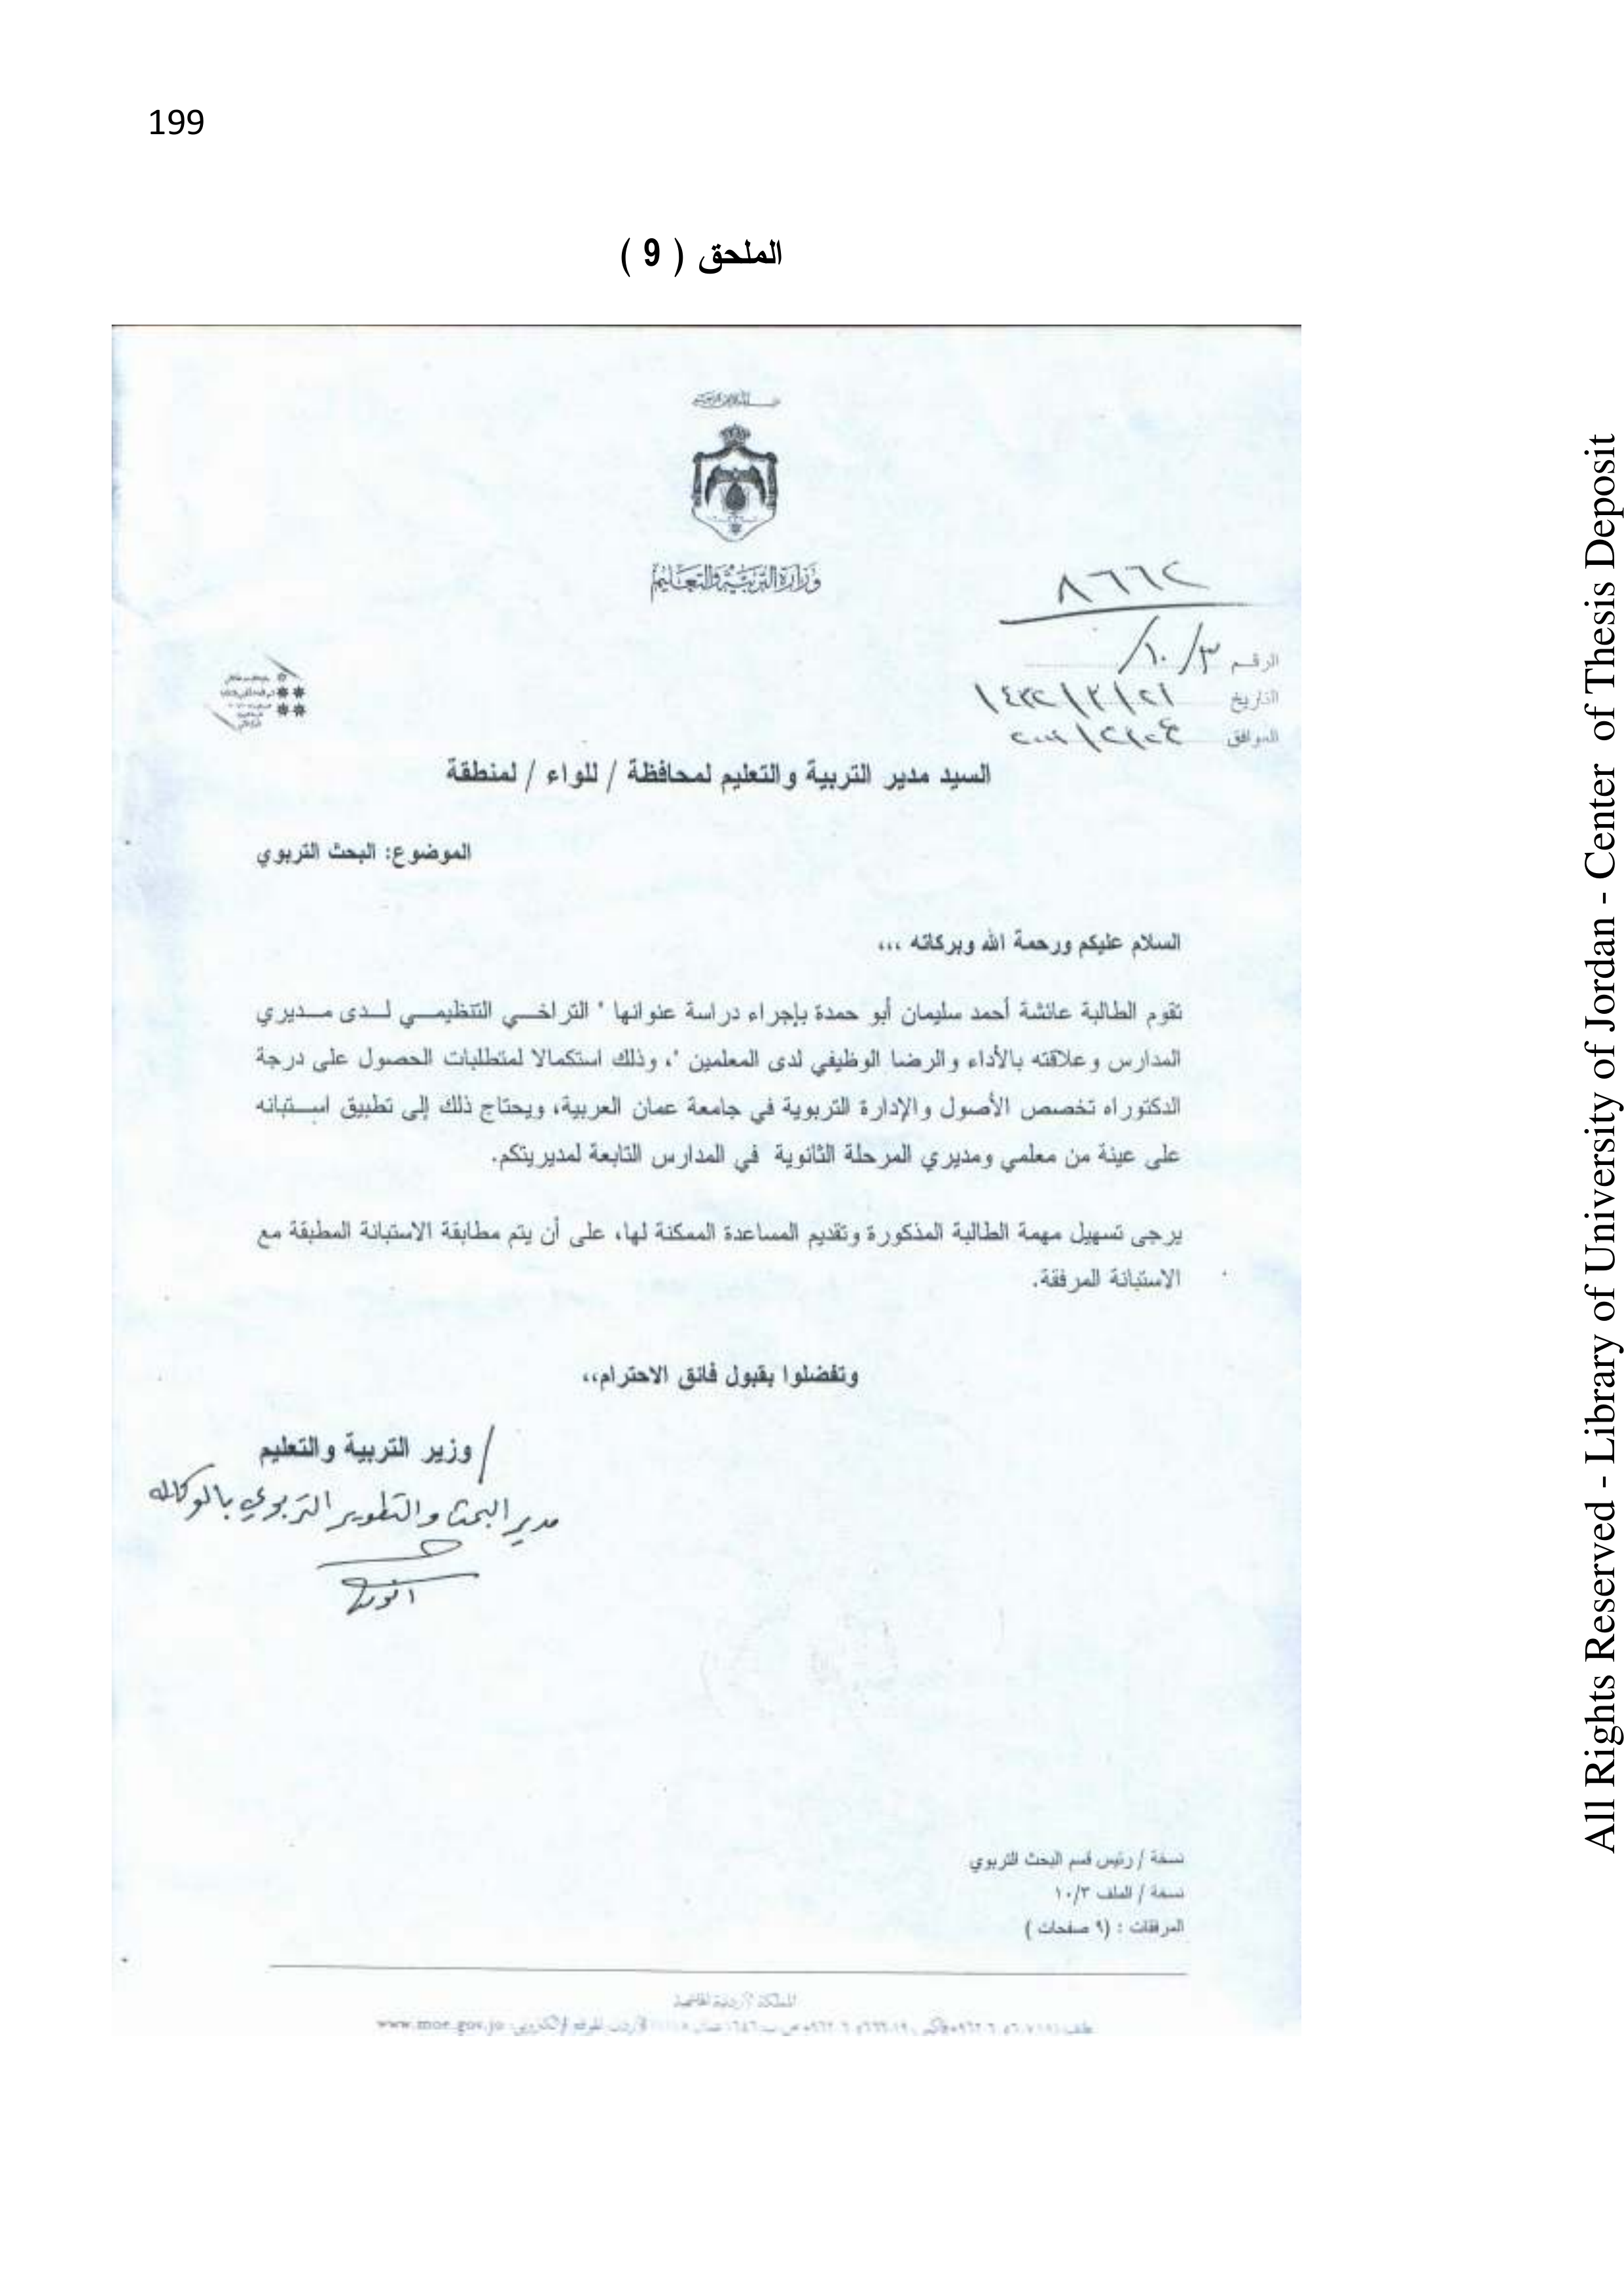 199
الملحق ( 9 )
وزارة التربية والتعليم
٨٦٦٢
الرقم ٣/١٠/
التاريخ ١٤٣٢/٣/٢١
الموافق
السيد مدير التربية والتعليم لمحافظة / للواء / لمنطقة
الموضوع: البحث التربوي
السلام عليكم ورحمة الله وبركاته ،،،
تقوم الطالبة عائشة أحمد سليمان أبو حمدة بإجراء دراسة عنوانها " التراخي التنظيمي لدى مديري
المدارس وعلاقته بالأداء والرضا الوظيفي لدى المعلمين "، وذلك استكمالا لمتطلبات الحصول على درجة
الدكتوراه تخصص الأصول والإدارة التربوية في جامعة عمان العربية، ويحتاج ذلك إلى تطبيق استبانه
على عينة من معلمي ومديري المرحلة الثانوية في المدارس التابعة لمديريتكم.
يرجى تسهيل مهمة الطالبة المذكورة وتقديم المساعدة الممكنة لها، على أن يتم مطابقة الاستبانة المطبقة مع
الاستبانة المرفقة.
وتفضلوا بقبول فائق الاحترام،،
/ وزير التربية والتعليم
مدير البحث والتطوير التربوي بالوكالة
نسخة / رئيس قسم البحث التربوي
نسخة / الملف ١٠/٣
المرفقات : (٩ صفحات )
المملكة الأردنية الهاشمية
www.moe.gov.jo
All Rights Reserved - Library of University of Jordan - Center of Thesis Deposit